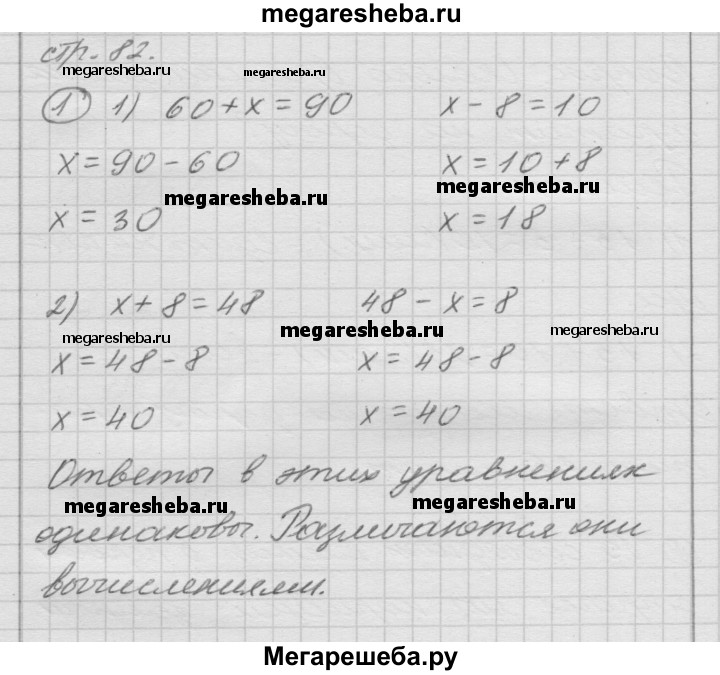 megaresheba.ru
стр. 82.
megaresheba.ru megaresheba.ru
1 1) 60 + x = 90 x - 8 = 10
x = 90 - 60 x = 10 + 8
megaresheba.ru megaresheba.ru
x = 30 x = 18
2) x + 8 = 48 48 - x = 8
megaresheba.ru megaresheba.ru megaresheba.ru
x = 48 - 8 x = 48 - 8
x = 40 x = 40
Ответы в этих уравнениях
megaresheba.ru megaresheba.ru
одинаковы. Различаются они
вычислениями.
Мегарешеба.ру